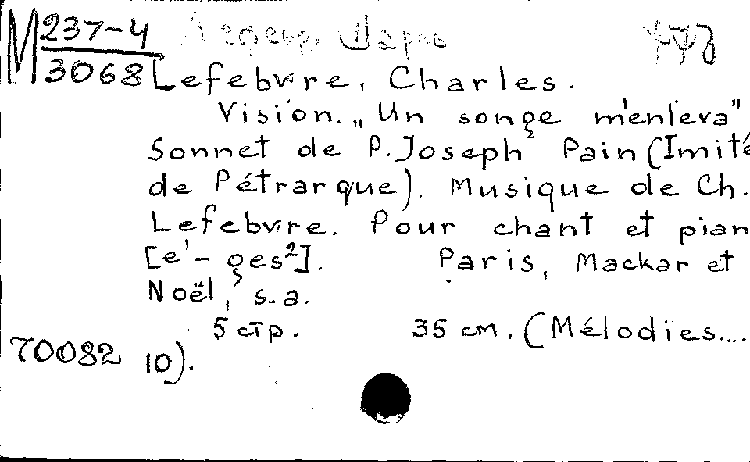 М 237-4
3068
Lefebvre, Charles.
Vision. „Un songe m'enleva"
Sonnet de P. Joseph Pain (Imité
de Pétrarque). Musique de Ch.
Lefebvre. Pour chant et pian
[e¹- ges²]. Paris, Mackar et
Noël, s.a.
5 стр. 35 см. (Mélodies...
70082 10).